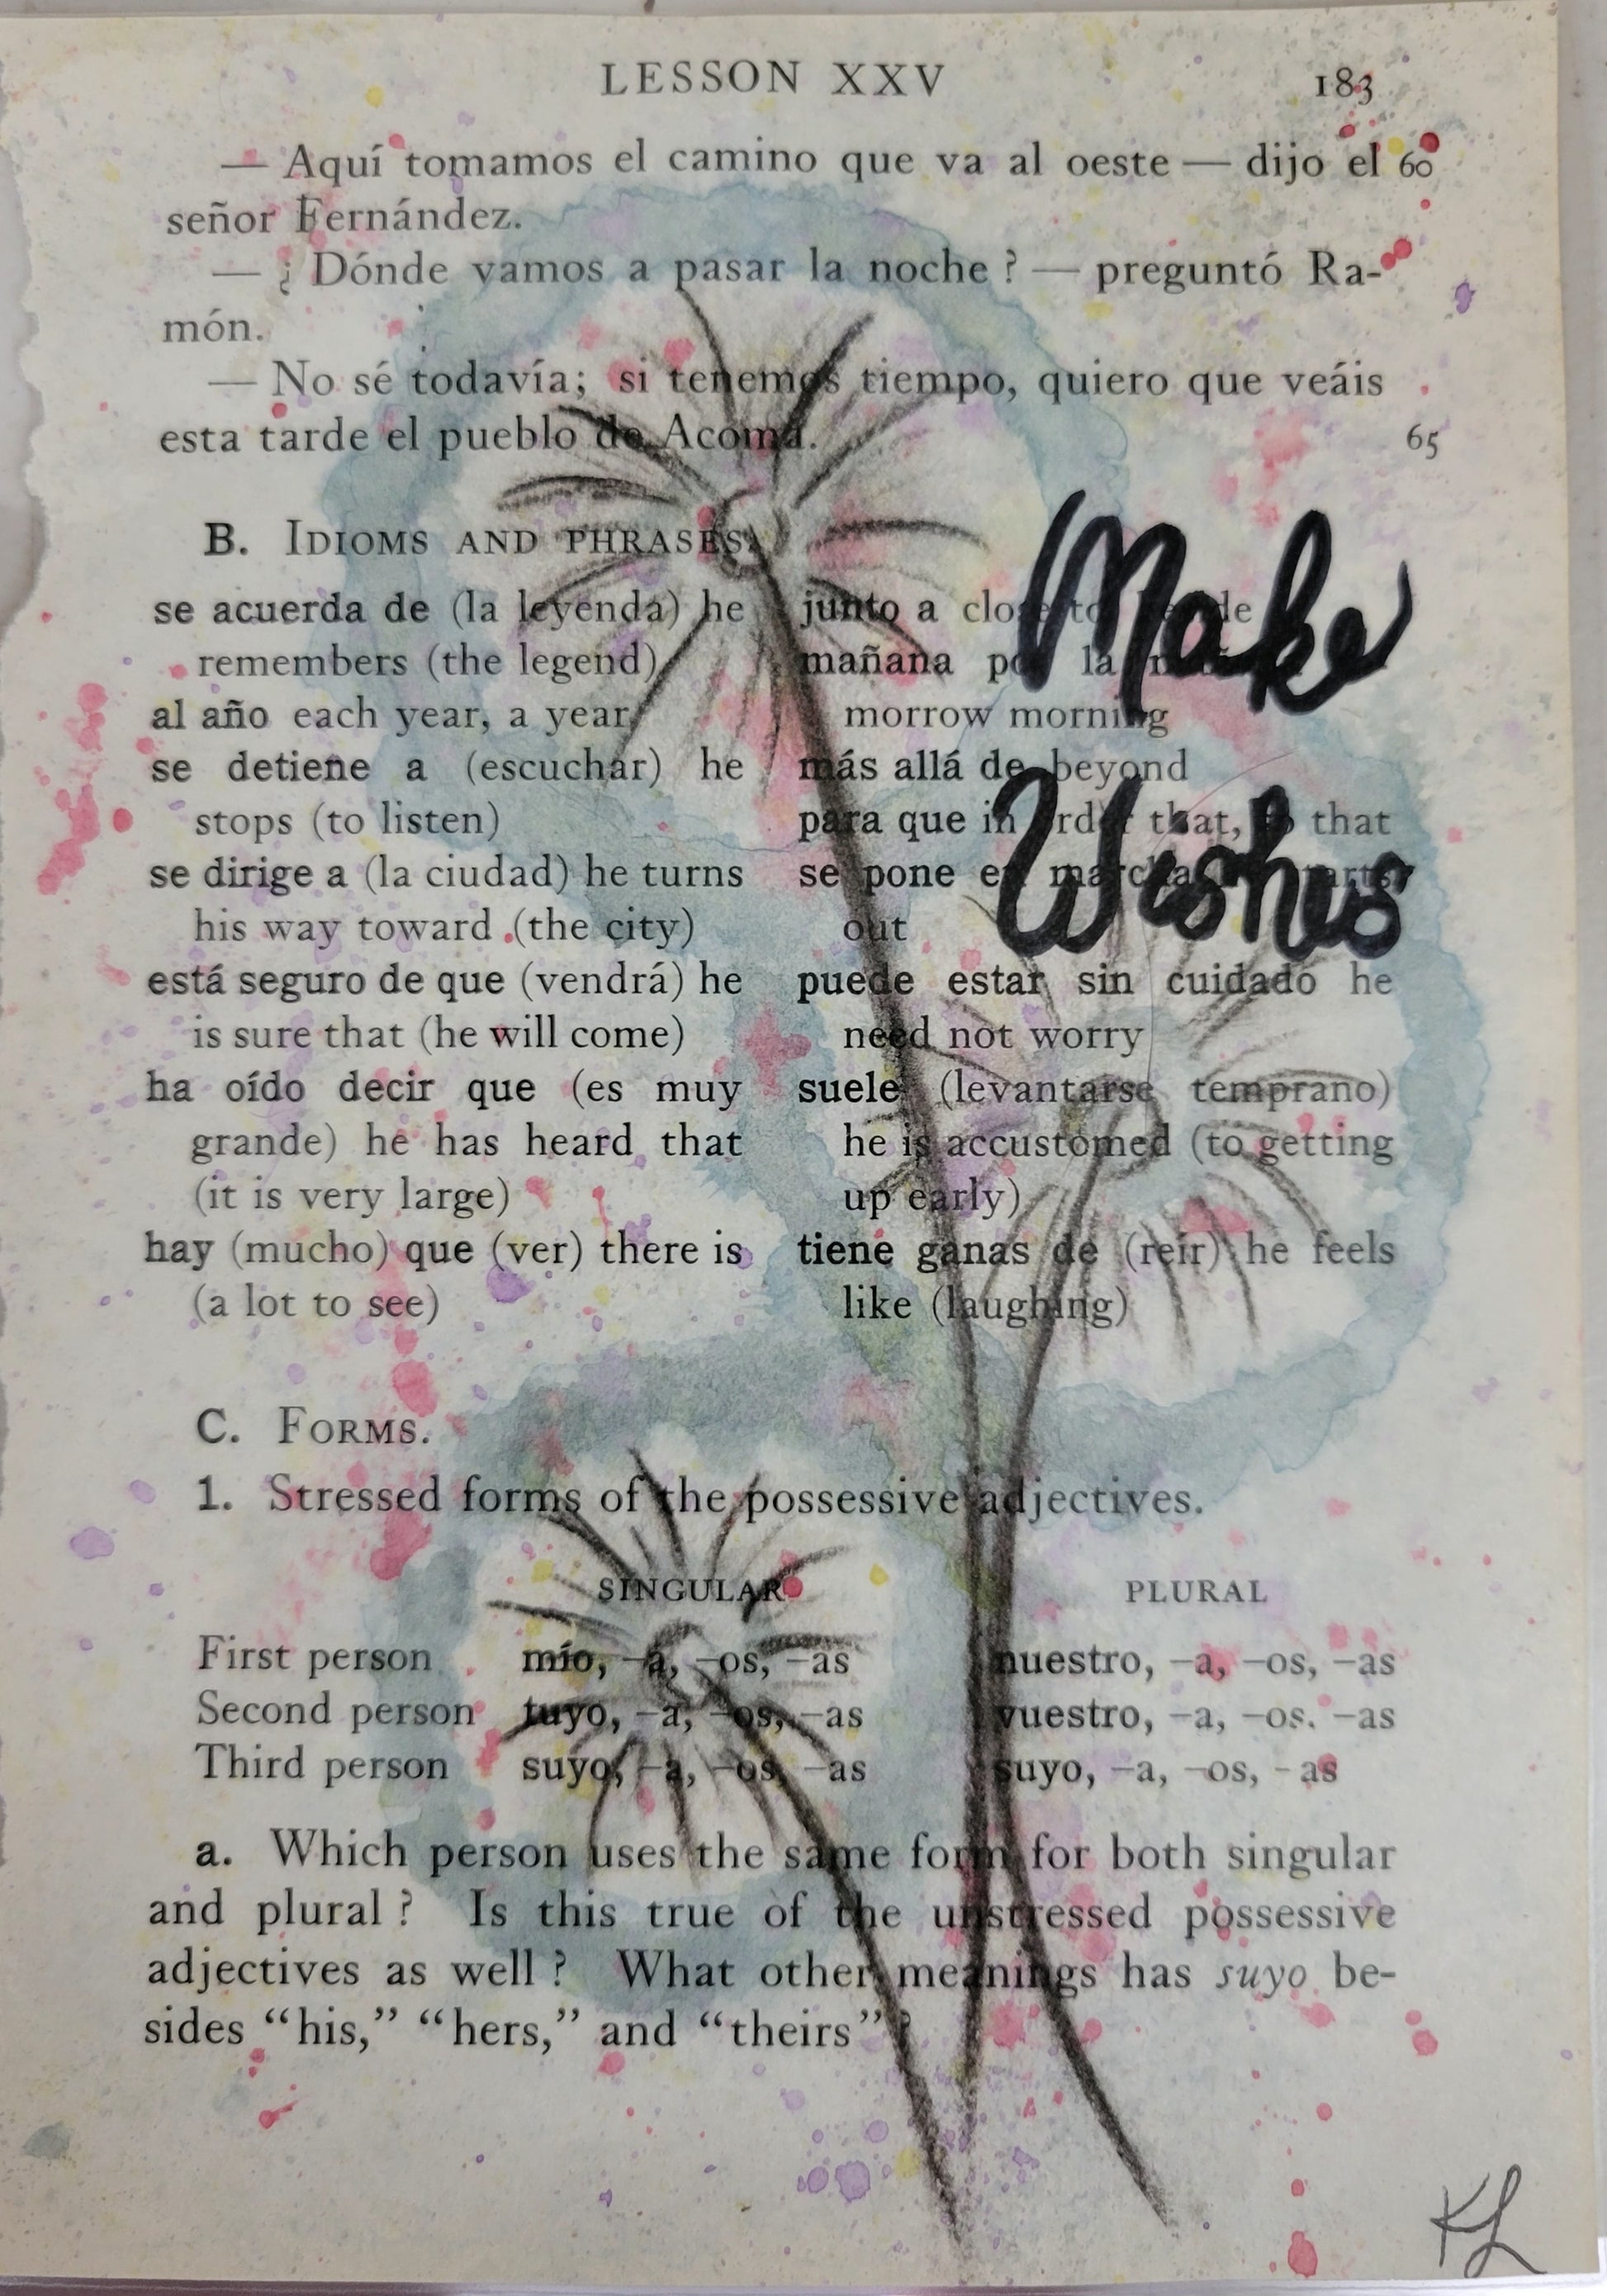 LESSON XXV 183
— Aquí tomamos el camino que va al oeste — dijo el 60
señor Fernández.
— ¿ Dónde vamos a pasar la noche ? — preguntó Ra-
món.
— No sé todavía; si tenemos tiempo, quiero que veáis
esta tarde el pueblo de Acoma. 65
B. IDIOMS AND PHRASES.
se acuerda de (la leyenda) he
remembers (the legend)
al año each year, a year
se detiene a (escuchar) he
stops (to listen)
se dirige a (la ciudad) he turns
his way toward (the city)
está seguro de que (vendrá) he
is sure that (he will come)
ha oído decir que (es muy
grande) he has heard that
(it is very large)
hay (mucho) que (ver) there is
(a lot to see)
junto a close to
mañana por la
morrow morning
más allá de beyond
para que in order that, so that
se pone en marcha
out
puede estar sin cuidado he
need not worry
suele (levantarse temprano)
he is accustomed (to getting
up early)
tiene ganas de (reír) he feels
like (laughing)
Make
Wishes
C. FORMS.
1. Stressed forms of the possessive adjectives.
SINGULAR PLURAL
First person mío, –a, –os, –as nuestro, –a, –os, –as
Second person tuyo, –a, –os, –as vuestro, –a, –os. –as
Third person suyo, –a, –os, –as suyo, –a, –os, –as
a. Which person uses the same form for both singular
and plural ? Is this true of the unstressed possessive
adjectives as well ? What other meanings has suyo be-
sides “his,” “hers,” and “theirs” ?
KL